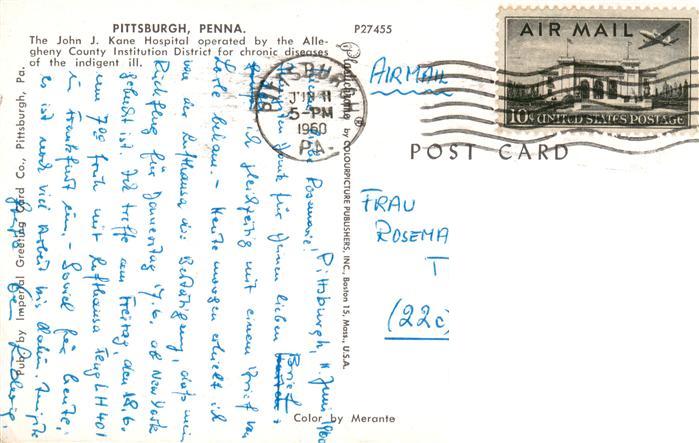 PITTSBURGH, PENNA.
P27455
The John J. Kane Hospital operated by the Alle-
gheny County Institution District for chronic diseases
of the indigent ill.
Pub. by Imperial Greeting Card Co., Pittsburgh, Pa.
Plastichrome® by COLOURPICTURE PUBLISHERS, INC., Boston 15, Mass., U.S.A.
Color by Merante
AIR MAIL
10¢ UNITED STATES POSTAGE
5-PM
1960
PA.
POST CARD
AIRMAIL
FRAU
ROSEMA
T
(22c)
Pittsburgh, 11. Juni 1960
Rosemarie!
Dank für Deinen lieben Brief,
ich gleichzeitig mit einem Brief von
Lore bekam. - Heute morgen erhielt ich
von der Lufthansa die Bestätigung, dass mein
Rückflug für Donnerstag 17.6. ab New York
gebucht ist. Ich treffe am Freitag, den 18.6.
um 7.00 früh mit Lufthansa Flug LH 401
in Frankfurt ein. - Soviel für heute,
es ist noch viel Arbeit bis dahin.
Dein Ludwig.